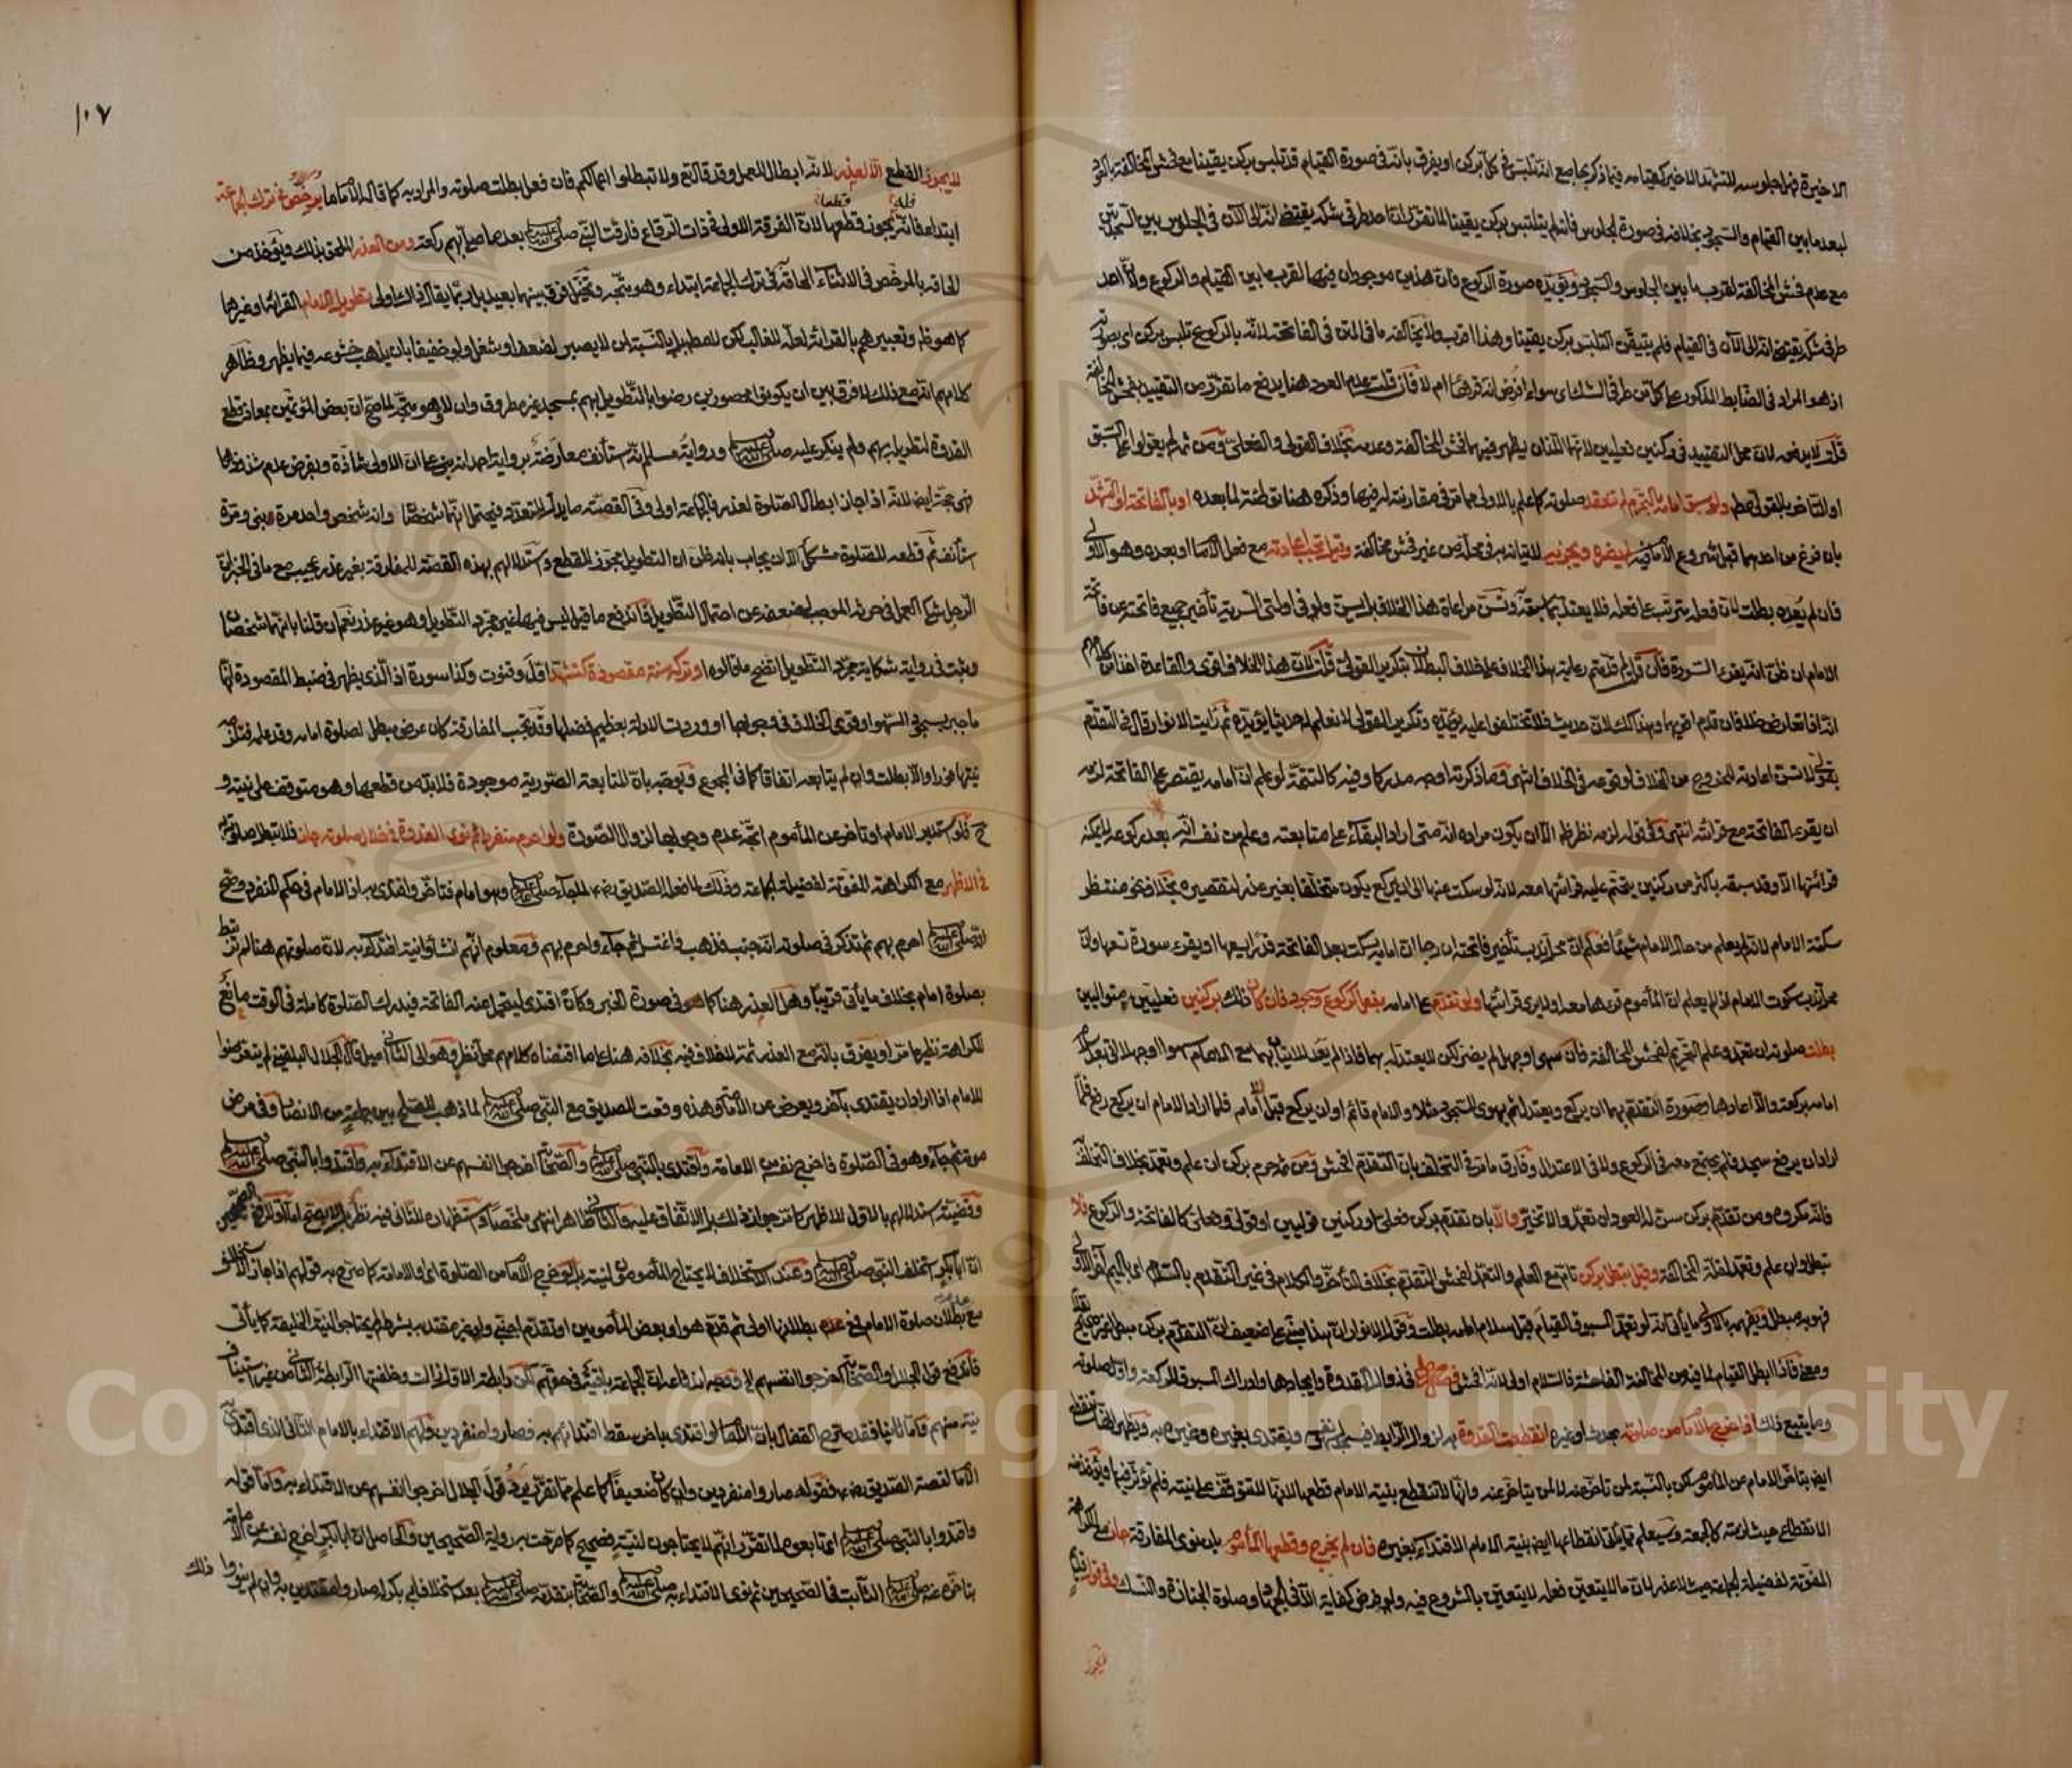 الاخيرة فهل جلوسه للتشهد الاخير كقيامه فيما ذكر بجامع انه تلبس في كل بركن او يفرق بانه في صورة القيام قد تلبس بركن يقينا مع فحش المخالفة بالعود
لبعد ما بين القيام والسجود بخلافه في صورة الجلوس فانه لم يتلبس بركن يقينا لما تقرر ان احد طرفي شكه يقتضي انه الى الآن في الجلوس بين السجدتين
مع عدم فحش المخالفة لقرب ما بين الجلوس والسجود ويؤيده صورة الركوع فان هذين موجودان فيها لقرب ما بين القيام والركوع ولان احد
طرفي شكه يقتضي انه الى الآن في القيام فلم يتيقن التلبس بركن يقينا وهذا اقرب ولا يخالفه ما في المتن في الفاتحة لانه بالركوع تلبس بركن اي بصورته
اذ هو المراد في الضابط المذكور على كل من طرفي الشك اي سواء افرض انه قرأها ام لا فان قلت عدم العود هنا يدفع ما تقرر من التقييد بفحش المخالفة
قلت لا يدفعه لان محل التقييد في ركنين فعليين لانهما اللذان يظهر فيهما فحش المخالفة وعدمه بخلاف القولي والفعلي ومن ثم لم يعولوا على السبق
او التأخر بالقولي فقط ولو سبق امامه بالتحرم لم تنعقد صلوته كما علم بالاولى مما مر في مقارنته له فيها وذكره هنا توطئة لما بعده او بالفاتحة او التشهد
بان فرغ من احدهما قبل شروع الامام فيه لم يضره ويجزئه لاتيانه به في محله من غير فحش مخالفة وقيل تجب اعادته مع فعل الامام او بعده وهو الاولى
فان لم يعده بطلت لان فعله مترتب على فعله فلا يعتد بما سبقه ويسن مراعاة هذا الخلاف بل يسن ولو في اولتي السرية تأخير جميع فاتحته عن فاتحة
الامام ان ظن انه يقرأ السورة فان قلت لم قدمتم رعاية هذا الخلاف على خلاف البطلان بتكرير القولي قلت لان هذا الخلاف اقوى والقاعدة اخذا من كلامهم
انه اذا تعارض خلافان قدم اقويهما وهذا كذلك لان حديث فلا تختلفوا عليه يؤيده وتكرير القولي لا نعلم له حديثا يؤيده ثم رأيت الانوار قال في التقدم
بقولي لا تسن اعادته للخروج من الخلاف او وقوعه في الخلاف انتهى وما ذكرته اوجه مدركا وفي التتمة لو علم ان امامه يقتصر على الفاتحة لزمه
ان يقرء الفاتحة مع قرائته انتهى وفي قوله لزمه نظر ظاهر الا ان يكون مراده انه متى اراد البقاء على متابعته وعلم من نفسه انه بعد ركوعه لا يمكنه
قرائتها الا وقد سبقه باكثر من ركنين يتحتم عليه قرائتها معه لانه لو سكت عنها الى ان يركع يكون متخلفا بغير عذر لتقصيره بخلاف نحو منتظر
سكتة الامام لانه لم يعلم من حال الامام شيئا فعلم ان محل ندب تأخير فاتحته ان رجا ان امامه يسكت بعد الفاتحة قدرا يسعها او يقرء سورة تسعها وان
محل ندب سكوت الامام اذا لم يعلم ان المأموم قرءها معه او لا يرى قرائتها ولو تقدم على امامه بفعل كركوع وسجود فان كان ذلك بركنين فعليين متواليين
بطلت صلوته ان تعمد وعلم التحريم لفحش المخالفة فان سهى او جهل لم يضر لكن لا يعتد له بهما فاذا لم يعد للاتيان بهما مع الامام سهوا او جهلا اتى بعد سلام
امامه بركعة والا اعادها وصورة التقدم بهما ان يركع ويعتدل ثم يهوي للسجود مثلا والامام قائم او ان يركع قبل امامه فلما اراد الامام ان يركع رفع فلما
اراد ان يرفع سجد فلم يجتمع معه في الركوع ولا في الاعتدال وفارق ما مر في التخلف بان التقدم افحش ومن ثم حرم بركن ان علم وتعمد بخلاف التخلف به
فانه مكروه ومن تقدم بركن سن له العود ان تعمد والا تخير والا بان تقدم بركن فعلي او ركنين قوليين او قولي وفعلي كالفاتحة والركوع فلا
تبطل وان علم وتعمد لقلة المخالفة وقيل تبطل بركن تام مع العلم والتعمد لفحش التقدم بخلاف التأخر والكلام في غير التقدم بالسلام اي بالميم آخر الاولى
فهو به مبطل وبالاولى ما يأتي انه لو تعمد المسبوق القيام قبل سلام امامه بطلت وقول الانوار ان هذا مبني على ضعيف ان التقدم بركن مبطل غير صحيح
ومع فاذا ابطل القيام لما فيه من المخالفة الفاحشة فالسلام اولى لانه افحش في زوال القدوة وايجادها وادراك المسبوق للركعة واول صلوته
وما يتبع ذلك اذا خرج الامام من صلوته بحدث او غيره انقطعت القدوة به لزوال الرابطة فيسجد لسهو نفسه ويقتدى بغيره وغيره به
ايض بتأخر الامام عن المأموم لكن بالنسبة لمن تأخر عنه لا لمن يتأخر عنه وانها لا تنقطع بنية الامام قطعها لانها لا تتوقف على نيته فلم تؤثر فيها
الانقطاع حيث لزمته كالجمعة وسيعلم مما يأتي انقطاعها ايض بنية الامام الاقتداء بغيره فان لم يخرج وقطعها المأموم بان نوى المفارقة جاز مع الكراهة
المفوتة لفضيلة الجماعة حيث لا عذر لان ما لا يتعين فعله لا يتعين بالشروع فيه ولو فرض كفاية الا في الجهاد وصلوة الجنازة والنسك وفي قول قديم
لا يجوز القطع الا لعذر لانه ابطال للعمل وقد قال تع ولا تبطلوا اعمالكم فان فعل بطلت صلوته والمراد به كما قاله الامام ما يرخص في ترك الجماعة
ابتداء فانه يجوز قطعها لان الفرقة الاولى في ذات الرقاع فارقت النبي صلى الله عليه وسلم بعد ما صلى بهم ركعة ومن العذر الملحق بذلك فيؤخذ من
الحاقه بالمرخص في الاثناء الحاقه في ترك الجماعة ابتداء وهو متجه وتخيل فرق بينهما بعيد بل ربما يقال ذلك اولى تطويل الامام القرائة او غيرها
كما هو ظ وتعبيرهم بالقرائة لعله للغالب لكن لا مطلقا بل بالنسبة لمن لا يصبر لضعف او شغل ولو خفيفا بان يذهب خشوعه فيما يظهر وظاهر
كلامهم انه مع ذلك لا فرق بين ان يكونوا محصورين رضوا بالتطويل بهم بمسجد غير مطروق وان لا وهو متجه لما صح ان بعض المؤتمين بمعاذ قطع
القدوة لتطويله بهم ولم ينكر عليه صلى الله عليه وسلم ورواية مسلم انه استأنف معارضة برواية احمد انه بنى على ان الاولى شاذة وبفرض عدم شذوذها
فهى حجة ايض لانه اذا جاز ابطال الصلوة لعذر فالجماعة اولى وفي القصة ما يدل للتعدد فيحتمل انهما شخصان وانه شخص واحد مرة بنى ومرة
استأنف ثم قطعه للصلوة مشكل الا ان يجاب بانه ظن ان التطويل مجوز للقطع واستدلالهم بهذه القصة للمفارقة بغير عذر عجيب مع ما في الخبر ان
الرجل شكى العمل في حرثه الموجب لضعفه عن احتمال التطويل فاندفع ما قيل ليس فيها غير مجرد التطويل وهو غير عذر نعم ان قلنا بانهما شخصان
وثبت في رواية شكاية مجرد التطويل اتضح ما قالوه او تركه سنة مقصودة كتشهد اول وقنوت وكذا سورة اذ الذي يظهر في ضبط المقصودة انها
ما جبر بسجود السهو او قوى الخلاف في وجوبها او وردت الادلة بعظيم فضلها وقد تجب المفارقة كان عرض مبطل لصلوة امامه وقد علمه فيلزمه
نيتها فورا والا بطلت وان لم يتابعه اتفاقا كما في المجموع ويوجه بان المتابعة الصورية موجودة فلا بد من قطعها وهو متوقف على نيته
وح فلو استدبر الامام او تأخر عن المأموم اتجه عدم وجوبها لزوال الصورة ولو احرم منفردا ثم نوى القدوة في خلال صلوته جاز فلا تبطل صلوته
في الاظهر مع الكراهة المفوتة لفضيلة الجماعة وذلك لما فعل الصديق رضه لما جاء صلى الله عليه وسلم وهو امام فتأخر واقتدى به اذ الامام في حكم المنفرد وصح
انه صلى الله عليه وسلم احرم بهم ثم تذكر في صلوته انه جنب فذهب فاغتسل ثم جاء واحرم بهم ومعلوم انهم انشأوا نية اقتداء به لان صلوتهم هنا لم ترتبط
بصلوة امام بخلاف ما يأتي قريبا وهل العذر هنا كما هو في صورة الخبر وكان اقتدى ليتحمل عنه الفاتحة فيدرك الصلوة كاملة في الوقت مانع
للكراهة نظير ما مر او يفرق بانه مع العذر ثمة لا خلاف فيه بخلافه هنا على ما اقتضاه كلامهم محل نظر وهو الى الثاني اميل قال الجلال البلقيني لم يتعرضوا
للامام اذا اراد ان يقتدى بآخر ويعرض عن الامامة وهذه وقعت للصديق مع النبي صلى الله عليه وسلم لما ذهب للصلح بين جماعة من الانصار وفي مرض
موته ثم جاء وهو في الصلوة فاخرج نفسه من الامامة واقتدى بالنبي صلى الله عليه وسلم والصحابة اخرجوا انفسهم عن الاقتداء به واقتدوا بالنبي صلى الله عليه وسلم
وقضية استدلالهم بالاول للاظهر كما تقرر جواز ذلك بل الاتفاق عليه ظاهر انتهى ملخصا واستظهاره للثاني فيه نظر بل لا يصح
ان ابابكر استخلف النبي صلى الله عليه وسلم وعند الاستخلاف لا يحتاج المأمومون لنية بل لو خرج الامام من الصلوة او الامامة كما صرح به قولهم اذا جاز الاستخلاف
مع بطلان صلوة الامام فمع عدم بطلانها اولى ثم قدم هو او بعض المأمومين او تقدم اجنبي ولو غير مقتد به بشرطه لم يحتاجوا لنية الخليفة كما يأتي
فاندفع قول الجلال والصحابة اخرجوا انفسهم
نية منهم واما ثانيا فقد صرح القفال بان الامام لو اقتدى باخر سقط اقتدائهم به وصاروا منفردين ولهم الاقتداء بالامام الثاني الذي اقتدى به
الامام لقصة الصديق رضه فقوله صاروا منفردين وان كان ضعيفا كما علم مما تقرر يرد قول الجلال اخرجوا انفسهم عن الاقتداء به واما قوله
واقتدوا بالنبي صلى الله عليه وسلم اي تابعوه لما تقرر انهم لا يحتاجون لنية فصحيح كما صرحت به رواية الصحيحين والحاصل ان ابابكر اخرج نفسه عن الامامة
بتأخره عنه صلى الله عليه وسلم الثابت في الصحيحين ثم نوى الاقتداء به صلى الله عليه وسلم والصحابة بتقدمه صلى الله عليه وسلم بعد استخلاف ابي بكر له صاروا مقتدين به وان لم ينووا ذلك
١٠٧
Copyright © King Saud University